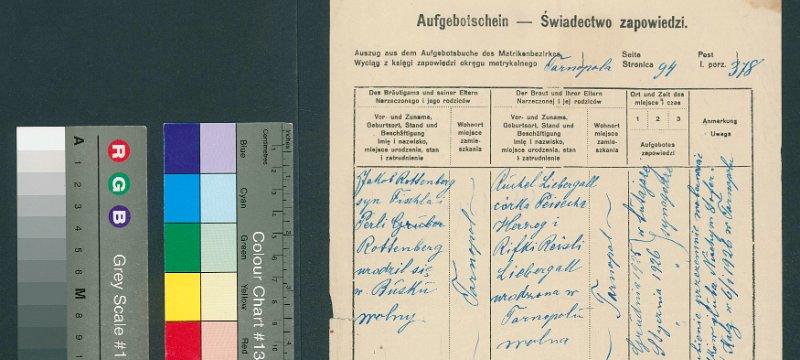 Aufgebotschein — Świadectwo zapowiedzi.
Auszug aus dem Aufgebotsbuche des Matrikenbezirkes
Wyciąg z księgi zapowiedzi okręgu matrykalnego Tarnopola
Seite
Stronica 94
Post
l. porz. 378
Des Bräutigams und seiner Eltern
Narzeczonego i jego rodziców
Der Braut und ihrer Eltern
Narzeczonej i jej rodziców
Ort und Zeit des
miejsce i czas
Anmerkung
Uwaga
Vor- und Zuname,
Geburtsort, Stand und
Beschäftigung
Imię i nazwisko,
miejsce urodzenia, stan
i zatrudnienie
Wohnort
miejsce
zamie-
szkania
Vor- und Zuname,
Geburtsort, Stand und
Beschäftigung
Imię i nazwisko,
miejsce urodzenia, stan
i zatrudnienie
Wohnort
miejsce
zamie-
szkania
1 2 3
Aufgebotes
zapowiedzi
Jakob Rottenberg
syn Fischla i
Perli Gruber
Rottenberg
urodził się
w Busku
wolny
Tarnopol
Ruchel Liebergall
córka Peisecha
Herzog i
Rifki Reisli
Liebergall
urodzona w
Tarnopolu
wolna
Tarnopol
Grudnia 1925
Stycznia 1926
w 6/1 1926 w Tarnopolu
A 1 2 3 4 5 6 M 8 9 10
R
G
B
Grey Scale #1
Centimetres
Inches
Blue
Cyan
Green
Yellow
Red
Colour Chart #13